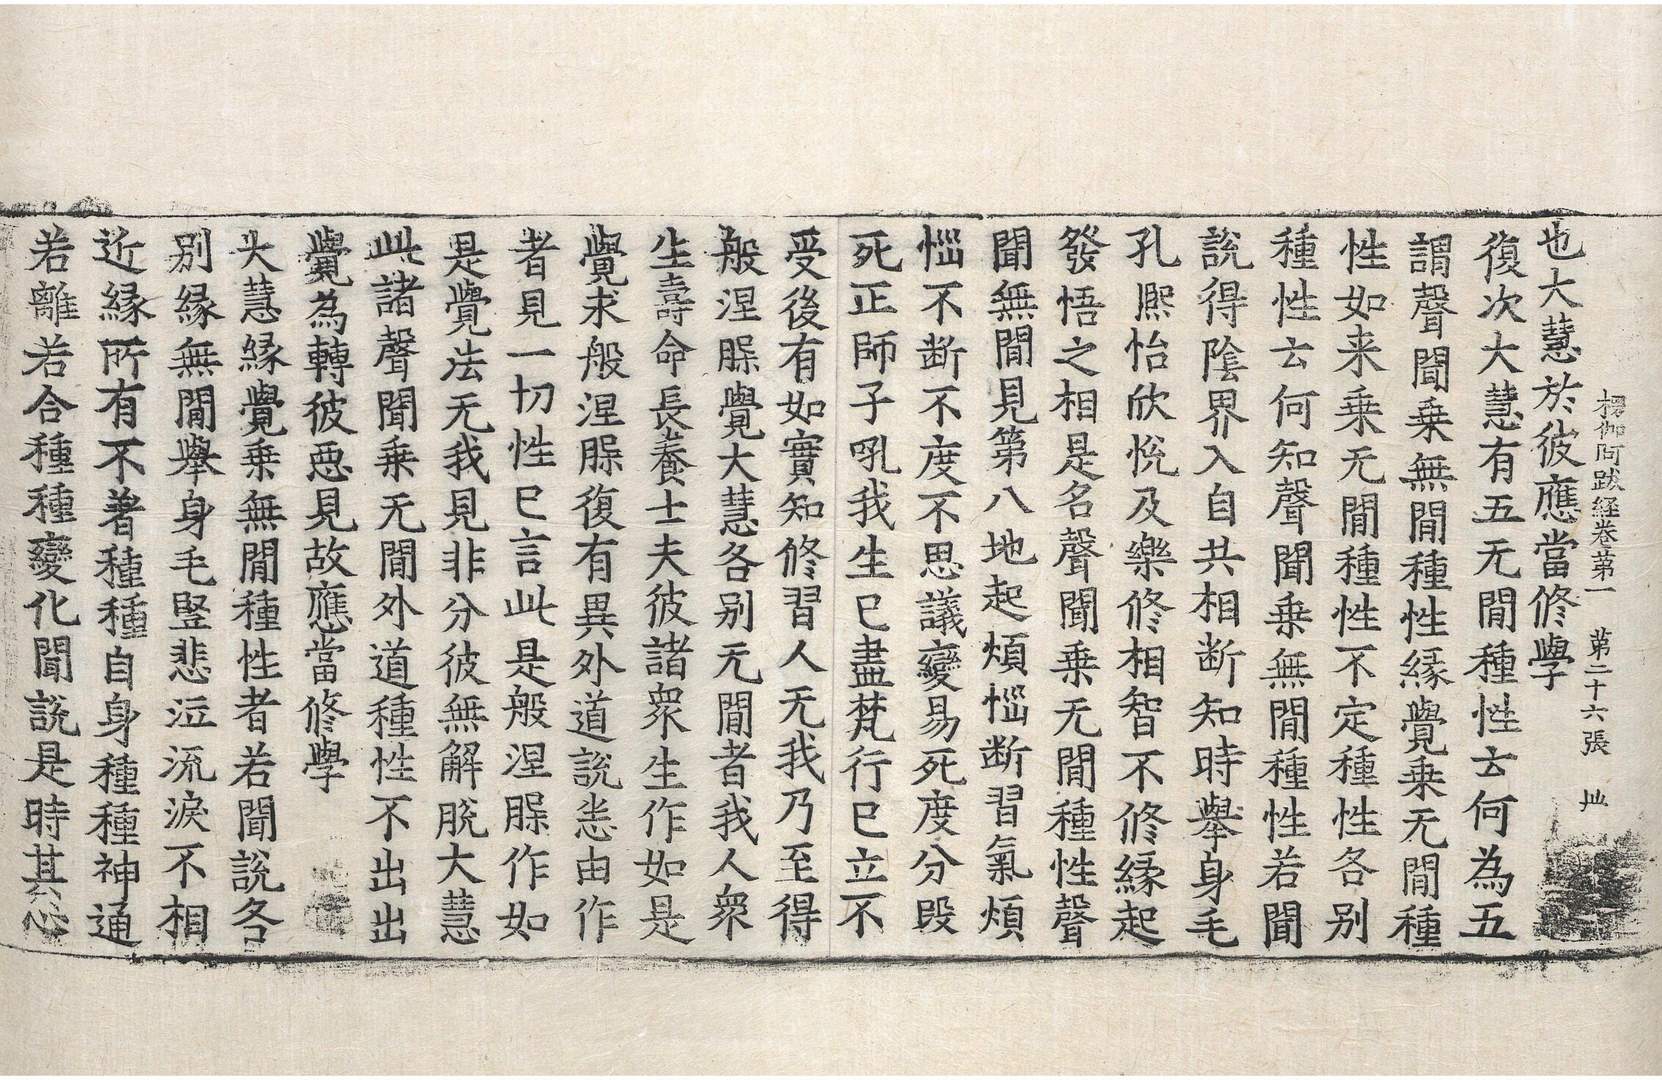 楞伽阿跋経卷第一　第二十六張
也大慧於彼應當修學
復次大慧有五无閒種性云何為五
謂聲聞乗無閒種性縁覺乗无閒種
性如来乗无閒種性不定種性各别
種性云何知聲聞乗無閒種性若聞
說得陰界入自共相断知時擧身毛
孔熈怡欣恱及樂修相智不修縁起
發悟之相是名聲聞乗无閒種性聲
聞無閒見第八地起煩惱断習氣煩
惱不断不度不思議變易死度分段
死正師子吼我生已盡梵行已立不
受後有如實知修習人无我乃至得
般涅槃覺大慧各别无閒者我人衆
生壽命長養士夫彼諸衆生作如是
覺求般涅槃復有異外道說悉由作
者見一切性已言此是般涅槃作如
是覺法无我見非分彼無解脫大慧
此諸聲聞乗无閒外道種性不出出
覺為轉彼惡見故應當修學
大慧縁覺乗無閒種性者若聞說各
别縁無閒擧身毛竪悲泣流淚不相
近縁所有不著種種自身種種神通
若離若合種種變化聞說是時其心